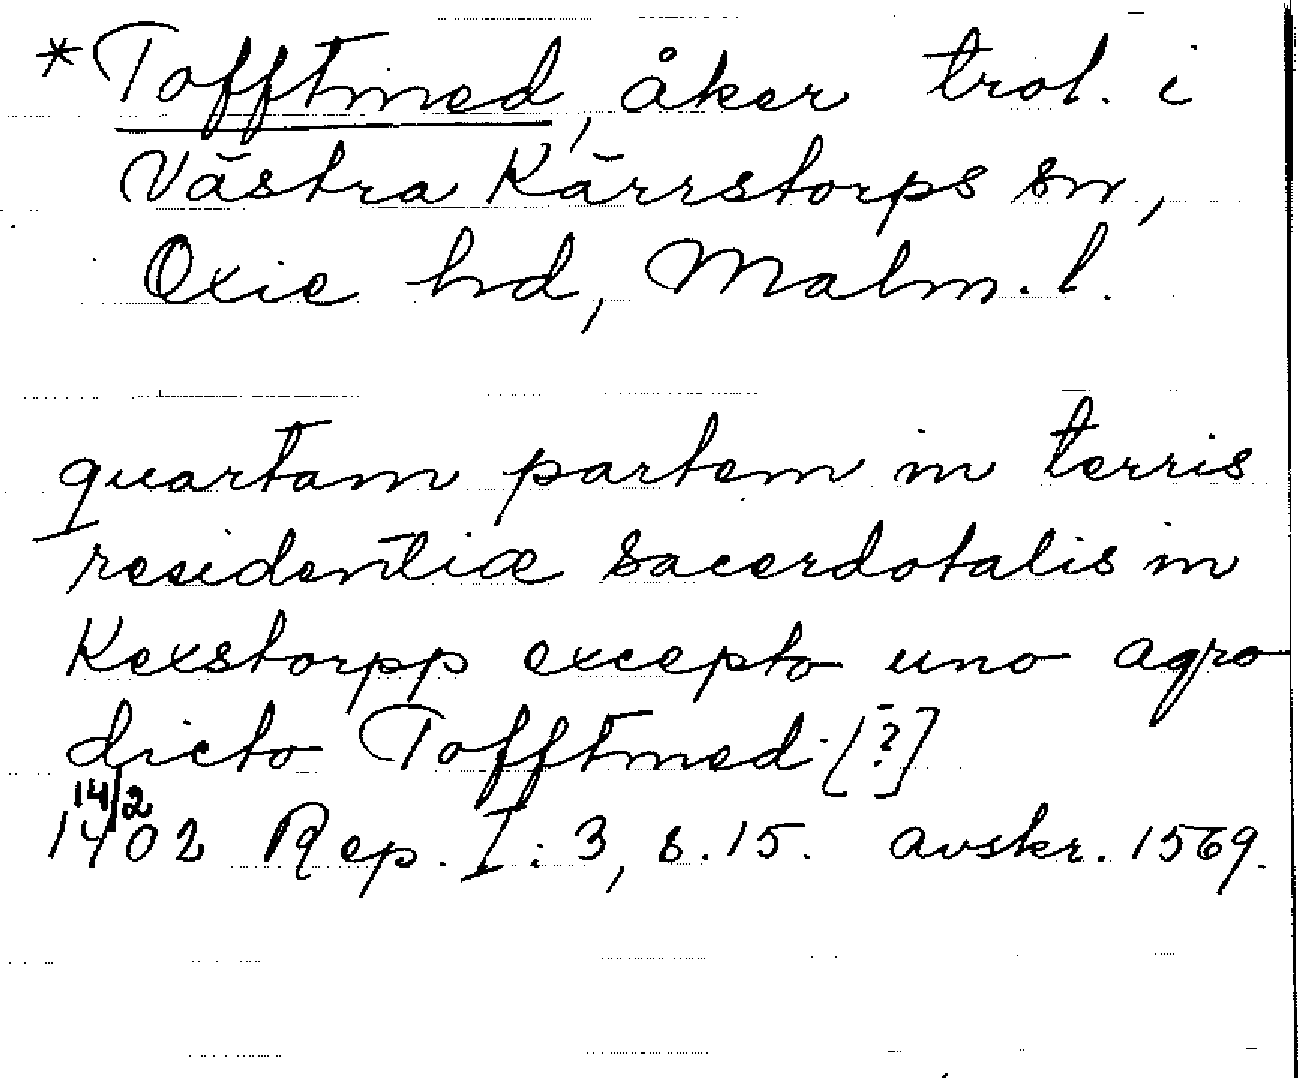 *Tofftmed, åker trol. i
Västra Kärrstorps sn,
Oxie hd, Malm. l.
quartam partem in terris
residentiæ sacerdotalis in
Kexstorpp excepto uno agro
dicto Tofftmed [?]
14/2
1402 Rep. I: 3, s. 15. avskr. 1569.